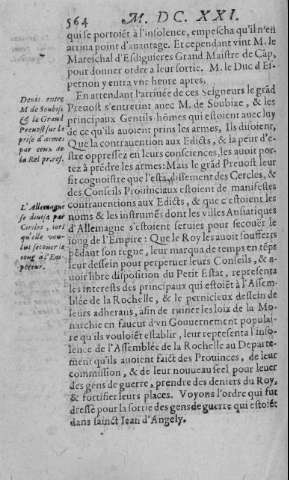 564 M. DC. XXI.
qui se portoiẽt à l'insolence, empescha qu'il n'en
arriua point d'auantage. Et cependant vint M. le
Mareschal d'Esdiguieres Grand Maistre de Cap,
pour donner ordre à leur sortie. M. le Duc d'Es-
pernon y entra vne heure apres.
En attendant l'arriuée de ces Seigneurs le grãd
Preuost s'entretint auec M. de Soubize, & les
principaux Gentils-hõmes qui estoiẽt auec luy
de ce qu'ils auoient prins les armes, Ils disoient,
Que la contrauention aux Edicts, & la peur d'e-
stre oppressez en leurs consciences, les auoit por-
tez à prẽdre les armes: Mais le grãd Preuost leur
fit cognoistre que l'establissement des Cercles, &
des Conseils Prouinciaux estoient de manifestes
contrauentions aux Edicts, & que c'estoient les
noms & les instrumẽs dont les villes Ansiatiques
d'Allemagne s'estoient seruies pour secoüer le
joug de l'Empire: Que le Roy les auoit soufferts
pẽdant son regne, leur marqua de temps en tẽps
leur dessein pour perpetuer leurs Conseils, & a-
uoir libre disposition du Petit Estat, representa
les interests des principaux qui estoiẽt à l'Assem-
blée de la Rochelle, & le pernicieux dessein de
leurs adherans, afin de ruiner les loix de la Mo-
narchie en faueur d'vn Gouuernement populai-
re qu'ils vouloiẽt establir, leur representa l'inso-
lence de l'Assemblée de la Rochelle au Departe-
ment qu'ils auoient faict des Prouinces, de leur
commission, & de leur nouueau seel pour leuer
des gens de guerre, prendre des deniers du Roy,
& fortifier leurs places. Voyons l'ordre qui fut
dressé pour la sortie des gens de guerre qui estoiẽt
dans sainct Jean d'Angely.
Deuis entre
M. de Soubize
& le Grand
Preuost sur la
prise d'armes
par ceux de
la Rel. pret. ref.
L'Allemagne
se diuisa par
Cercles, lors
qu'elle vou-
lut secoüer le
ioug d'Em-
pereur.